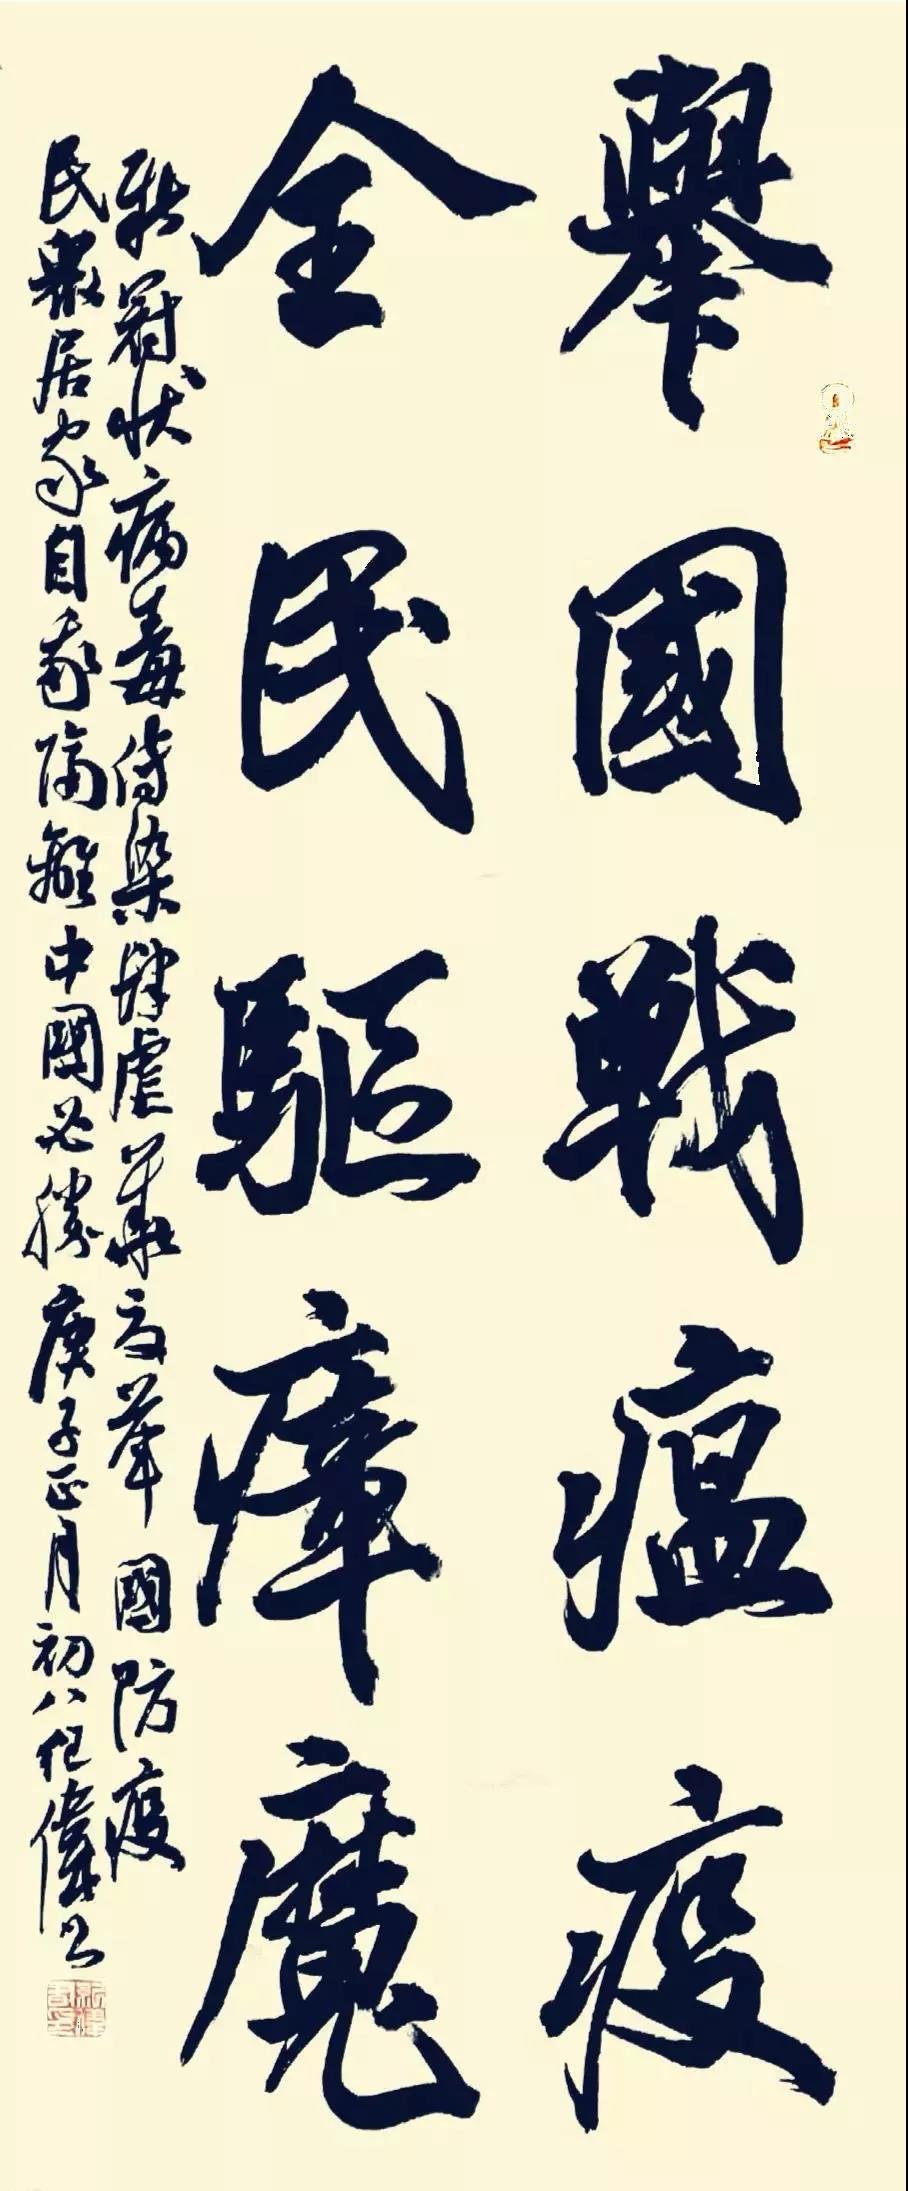 舉國戰瘟疫
全民驅瘴魔
新冠狀病毒傳染肆虐華夏举國防疫
民眾居家自我隔離中國必勝庚子正月初八任偉书